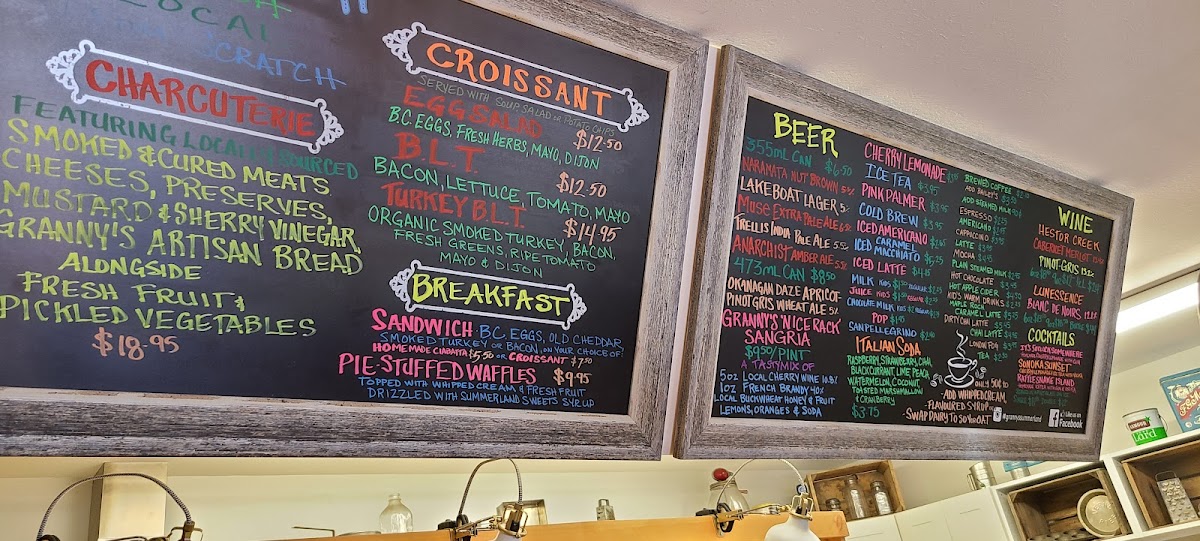 LOCAL
SCRATCH
CHARCUTERIE
FEATURING LOCALLY SOURCED
SMOKED & CURED MEATS
CHEESES, PRESERVES,
MUSTARD & SHERRY VINEGAR,
GRANNY'S ARTISAN BREAD
ALONGSIDE
FRESH FRUIT &
PICKLED VEGETABLES
$18.95
CROISSANT
SERVED WITH SOUP SALAD OR POTATO CHIPS
EGG SALAD $12.50
B.C. EGGS, FRESH HERBS, MAYO, DIJON
B.L.T. $12.50
BACON, LETTUCE, TOMATO, MAYO
TURKEY B.L.T. $14.95
ORGANIC SMOKED TURKEY, BACON,
FRESH GREENS, RIPE TOMATO
MAYO & DIJON
BREAKFAST
SANDWICH B.C. EGGS, OLD CHEDDAR,
SMOKED TURKEY OR BACON, ON YOUR CHOICE OF:
HOMEMADE CIABATTA $5.50 OR CROISSANT $7.50
PIE-STUFFED WAFFLES $9.95
TOPPED WITH WHIPPED CREAM & FRESH FRUIT
DRIZZLED WITH SUMMERLAND SWEETS SYRUP
BEER
355ML CAN $6.50
NARAMATA NUT BROWN 5%
LAKEBOAT LAGER 5%
MUSE EXTRA PALE ALE
TRELLIS INDIA PALE ALE 5.5%
ANARCHIST AMBER ALE
473ML CAN $8.50
OKANAGAN DAZE APRICOT
PINOT GRIS WHEAT ALE 5%
GRANNY'S NICE RACK
SANGRIA
$9.50/PINT
A TASTY MIX OF
5OZ LOCAL CHERRY WINE
1OZ FRENCH BRANDY 40%
LOCAL BUCKWHEAT HONEY & FRUIT
LEMONS, ORANGES & SODA
CHERRY LEMONADE
ICE TEA $3.95
PINK PALMER $3.95
COLD BREW $3.95
ICED AMERICANO
ICED CARAMEL
MACCHIATO $5.25
ICED LATTE $4.25
MILK KIDS REGULAR
JUICE KIDS REGULAR
CHOCOLATE MILK KIDS REGULAR
POP
SAN PELLEGRINO
ITALIAN SODA
RASPBERRY, STRAWBERRY, CHAI,
BLACKCURRANT, LIME, PEACH,
WATERMELON, COCONUT,
TOASTED MARSHMALLOW
& CRANBERRY
$3.75
BREWED COFFEE
ADD BAILEY'S
ADD STEAMED MILK
ESPRESSO
AMERICANO
CAPPUCCINO
LATTE
MOCHA
PLAIN STEAMED MILK
HOT CHOCOLATE
HOT APPLE CIDER
KID'S WARM DRINKS
MAPLE ROCK
CARAMEL LATTE
DIRTY CHAI LATTE
CHAI LATTE
LONDON FOG
TEA
ONLY 50¢ TO
ADD WHIPPED CREAM,
FLAVOURED SYRUP OR
SWAP DAIRY TO SOY/OAT
WINE
HESTER CREEK
CABERNET MERLOT
PINOT GRIS
LUNESSENCE
BLANC DE NOIRS
COCKTAILS
IT'S 5 O'CLOCK SOMEWHERE
SONOKA SUNSET
RATTLESNAKE ISLAND
@grannyssummerland
Like us on
Facebook
Lard